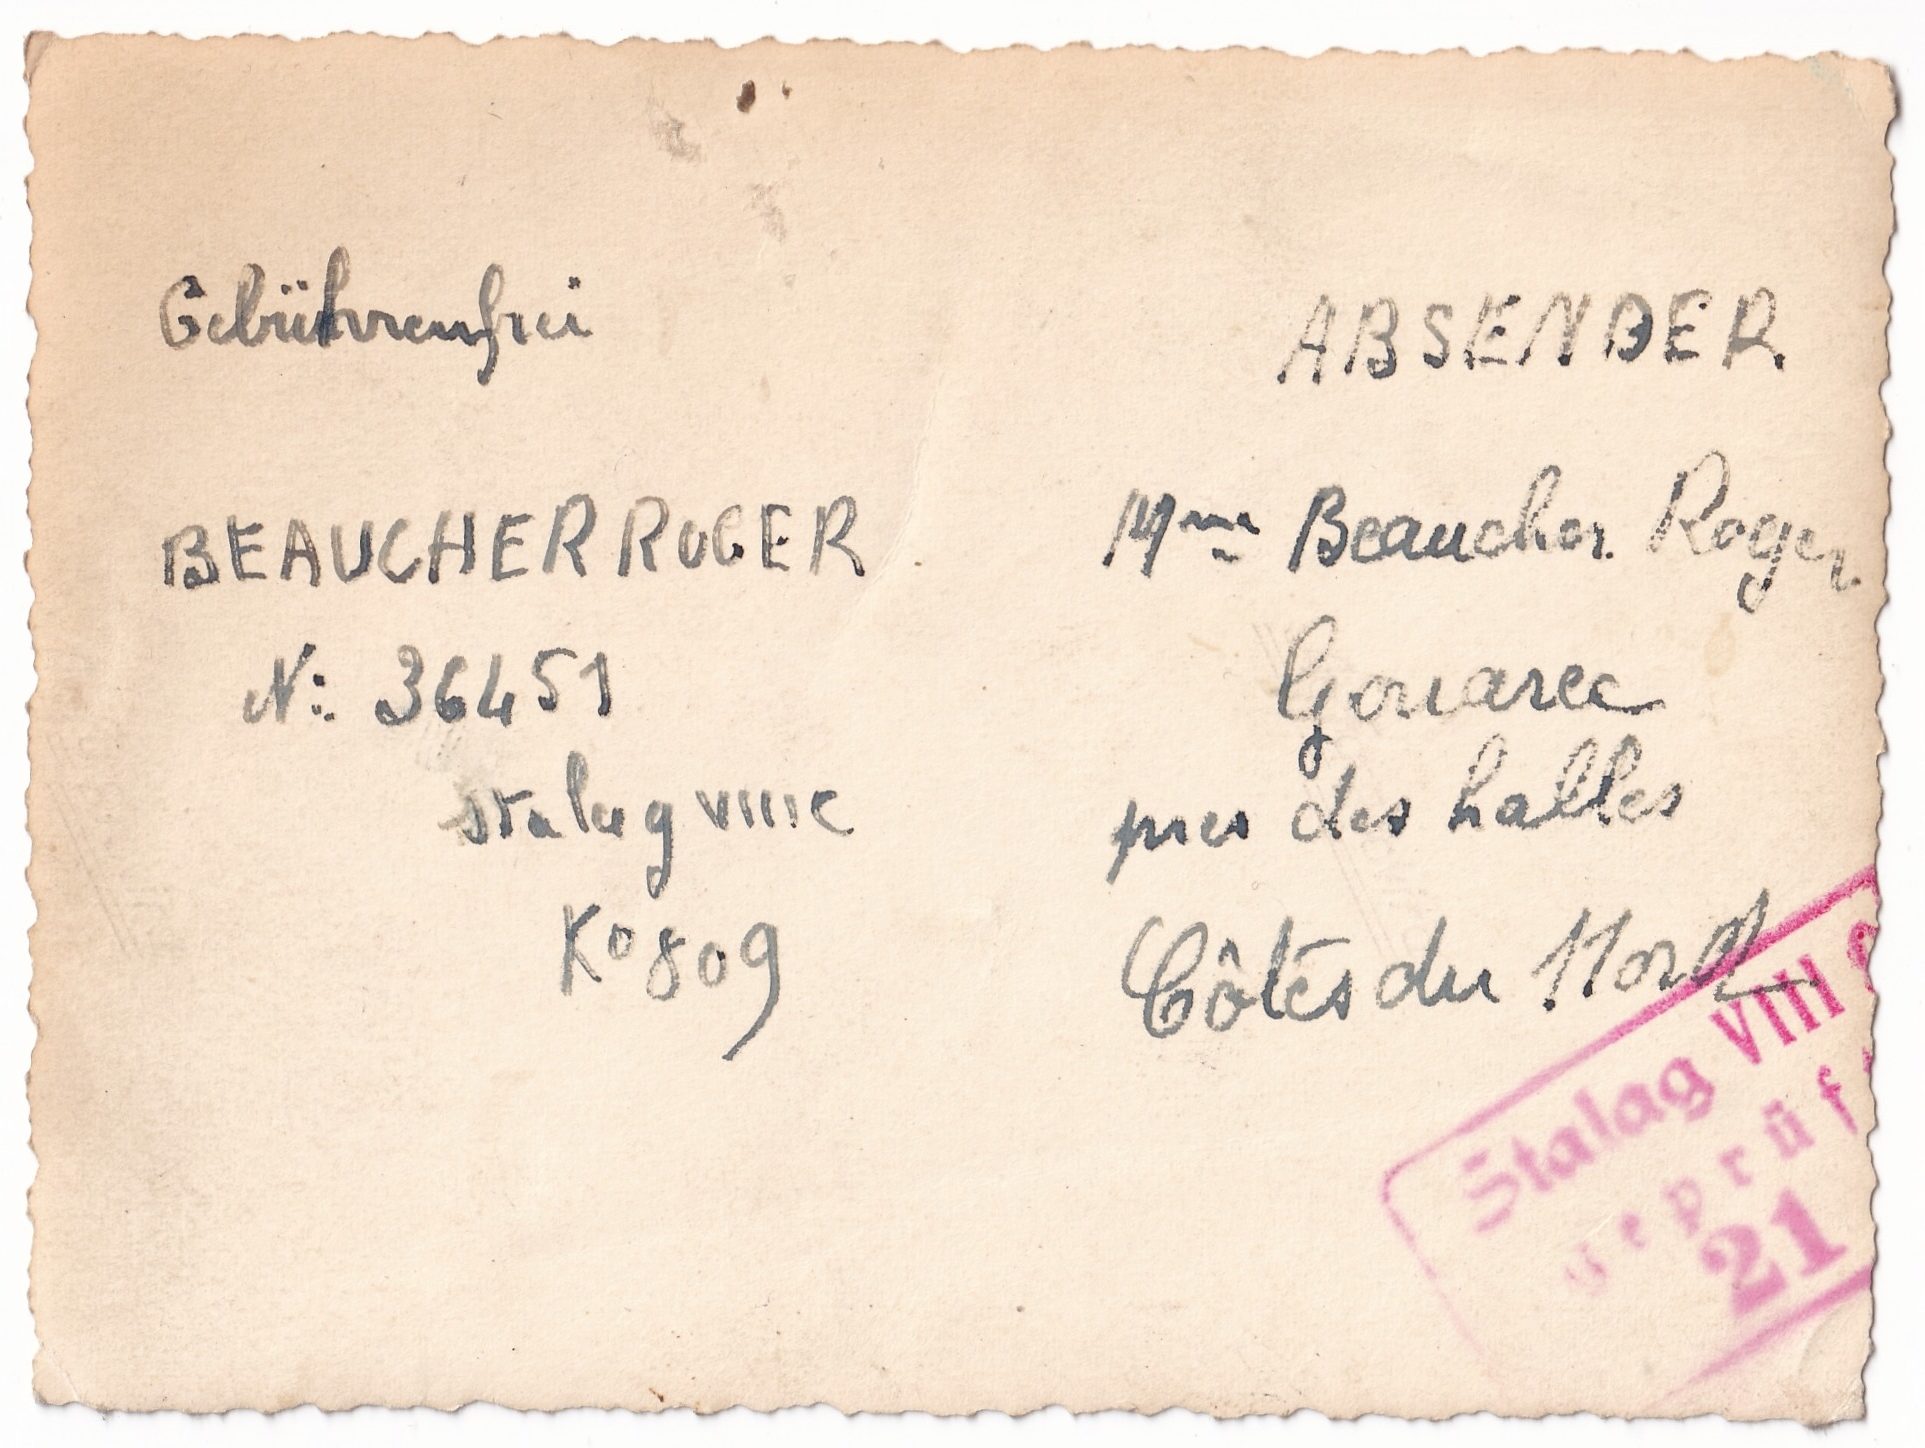 Gebührenfrei
BEAUCHER ROGER
N: 36451
Stalag VIIIC
Ko 809
ABSENDER
Mme Beaucher Roger
Gouarec
pres des halles
Côtes du Nord
Stalag VIII C
geprüf
21